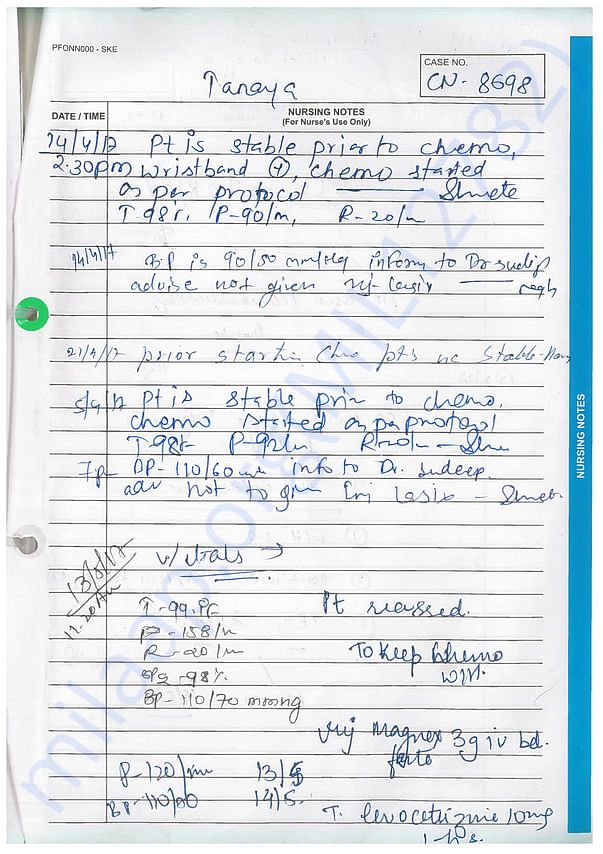 PFONN000 - SKE
CASE NO.
CN- 8698
Tanaya
DATE / TIME
NURSING NOTES
(For Nurse's Use Only)
14/4/17 Pt is stable prior to chemo,
2.30pm wristband (+), chemo started
as per protocol
T-98F, P-90/m, R-20/m
14/4/17 BP is 90/50 mm/Hg inform to Dr sudip
advise not given
21/4/17 prior
5/5/17 Pt is stable prior to chemo.
chemo started as per protocol
T-98F P-92/m R-20/m
7p BP-110/60 info to Dr. sudeep.
adv not to give Inj Lasix
13/5/17
11.20AM
v/itals →
T-99.
P-158/m
R-20/m
98%
BP-110/70 mmHg
Pt reassed.
To keep chemo
W/H.
Inj Magnex 3g iv bd.
forte
P-120/m 13/5
BP-110/60 14/5.
T. levocetrizine 10mg
NURSING NOTES
milaap.org(MIL12782)